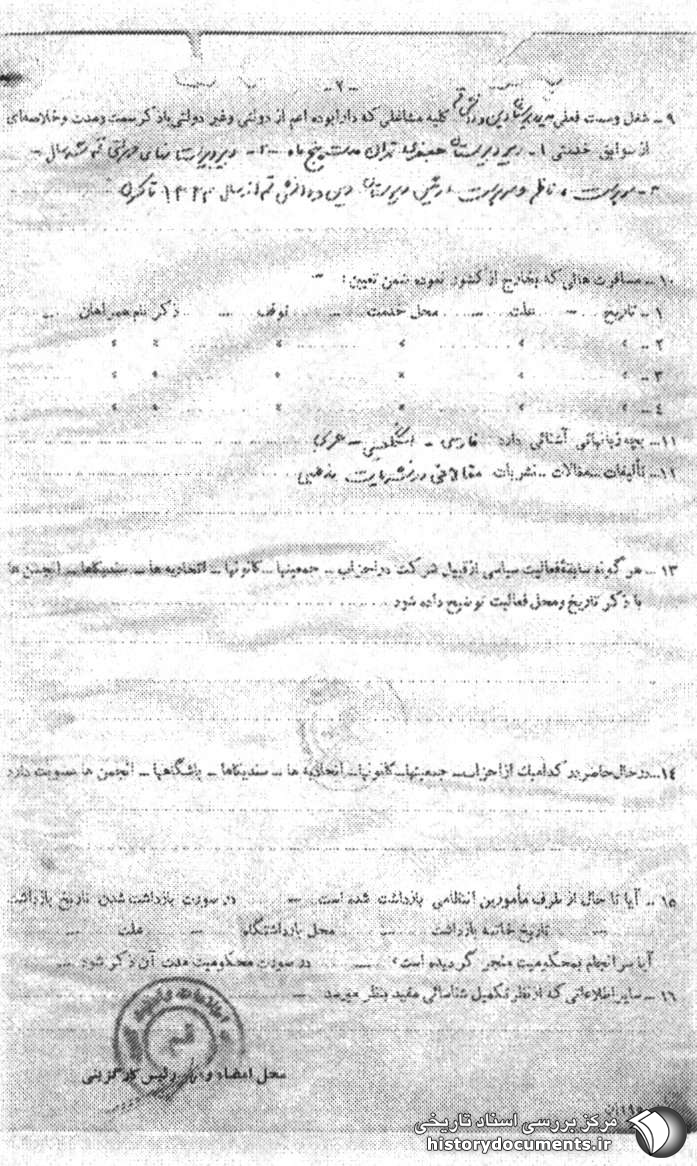 -۲-
۹ ـ شغل وسمت فعلی مدیر دبیرستان دین و دانش قم کلیه مشاغلی که دارا بوده اعم از دولتی وغیر دولتی باذکر سمت ومدت وخلاصه‌ای
از سوابق خدمتی ۱ـ دبیر دبیرستان جعفری تهران مدت پنج ماه ـ ۲ـ دبیر دبیرستانهای دولتی قم
۳ـ سرپرست دبیرستان دین و دانش قم از سال ۱۳۳۳ تاکنون
۱۰ ـ مسافرت هائی که بخارج از کشور نموده ضمن تعیین :
۱ ـ تاریخ ـ علت محل خدمت توقف ذکر نام همراهان
۲ ـ » » » » » »
۳ ـ » » » » » »
٤ ـ » » » » » »
۱۱ـ بچه زبانهائی آشنائی دارد فارسی ـ انگلیسی ـ عربی
۱۱ـ تألیفات ـ مقالات ـ نشریات مقالاتی در نشریات مذهبی
۱۳ ـ هر گونه سابقهٔ فعالیت سیاسی از قبیل شرکت در احزاب ـ جمعیتها ـ کانونها ـ اتحادیه ها ـ سندیکاها ـ انجمن ها
با ذکر تاریخ ومحل فعالیت توضیح داده شود
۱٤ـ در حال حاضر در کدامیك از احزاب ـ جمعیتها ـ کانونها ـ اتحادیه ها ـ سندیکاها ـ باشگاهها ـ انجمن ها عضویت دارد
۱۵ ـ آیا تا حال از طرف مأمورین انتظامی بازداشت شده است ـ در صورت بازداشت شدن تاریخ بازداشت
ـ تاریخ خاتمه بازداشت ـ محل بازداشتگاه ـ علت ـ
آیا سرانجام بمحکومیت منجر گردیده است؟ ـ در صورت محکومیت مدت آن ذکر شود ـ
۱٦ ـ سایر اطلاعاتی که از نظر تکمیل شناسائی مفید بنظر میرسد ـ
قم
محل امضاء و رئیس کارگزینی
مرکز بررسی اسناد تاریخی
historydocuments.ir